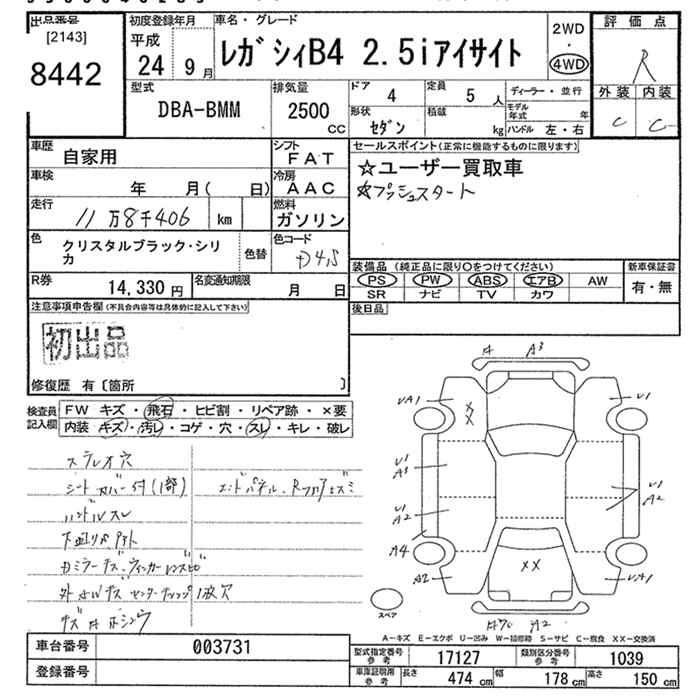 出品番号
[2143]
8442
初度登録年月
平成
24 9月
車名・グレード
レガシィB4 2.5iアイサイト
2WD
・
4WD
評価点
R
外装 内装
C C
型式
DBA-BMM
排気量
2500
CC
ドア
4
定員
5 人
ディーラー・並行
形状
セダン
積載
kg
モデル年式 年
ハンドル 左・右
車歴
自家用
シフト
FAT
車検
年 月( 日)
冷房
AAC
走行
11万8千406 km
燃料
ガソリン
色
クリスタルブラック・シリカ
色替
カラーコード
D4S
R券
14,330円
名変通知期限
月 日
セールスポイント(正常に機能するものに限ります)
☆ユーザー買取車
☆プッシュスタート
装備品(純正品に限り○をつけてください)
PS PW ABS エアB AW
SR ナビ TV カワ
新車保証書
有・無
後日品
注意事項申告欄(不具合内容等は具体的に記入して下さい)
初出品
修復歴 有〔箇所 〕
検査員記入欄
FW キズ・飛石・ヒビ割・リペア跡・×要
内装 キズ・汚レ・コゲ・穴・スレ・キレ・破レ
ステレオ穴
シートカバー付(1部)
エンドパネル、Rフロアヒズミ
ハンドルスレ
下廻りサビ
ホイルキズ センターキャップ1枚欠
A A3
UA1 U1
XX
U1
A3
U1
A2
A2
A4
A2
XX
UA1
A2
スペア
A-キズ E-エクボ U-凹み W-補修跡 S-サビ C-腐食 XX-交換済
車台番号 003731
登録番号
型式指定番号 参考 17127
類別区分番号 参考 1039
車庫証明用 参考 長さ 474cm 幅 178cm 高さ 150cm